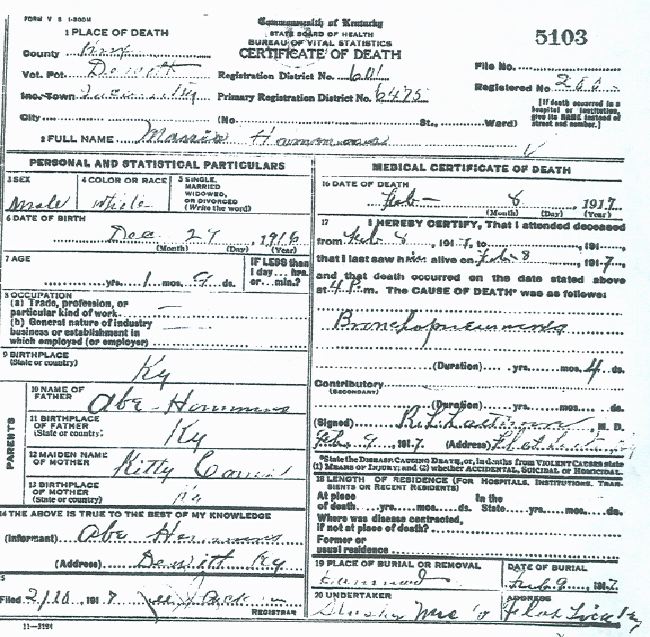 FORM V S 1-500M
Commonwealth of Kentucky
STATE BOARD OF HEALTH
BUREAU OF VITAL STATISTICS
CERTIFICATE OF DEATH
5103
1 PLACE OF DEATH
County Knox
Vot. Pct. Dewitt
Inc. Town
City (No St., Ward)
Registration District No. 601
Primary Registration District No. 6475
File No.
Registered No.
[If death occurred in a hospital or institution, give its NAME instead of street and number.]
2 FULL NAME Hammons
PERSONAL AND STATISTICAL PARTICULARS
3 SEX Male
4 COLOR OR RACE White
5 SINGLE, MARRIED WIDOWED, OR DIVORCED (Write the word)
6 DATE OF BIRTH
Dec 29 1916
(Month) (Day) (Year)
7 AGE
yrs. 1 mos. 9 ds.
IF LESS than 1 day... hrs. or... min.?
8 OCCUPATION
(a) Trade, profession, or particular kind of work
(b) General nature of industry business or establishment in which employed (or employer)
9 BIRTHPLACE (State or country) Ky
PARENTS
10 NAME OF FATHER Abe Hammons
11 BIRTHPLACE OF FATHER (State or country) Ky
12 MAIDEN NAME OF MOTHER Kitty
13 BIRTHPLACE OF MOTHER (State or country) Ky
14 THE ABOVE IS TRUE TO THE BEST OF MY KNOWLEDGE
(Informant) Abe Hammons
(Address) Dewitt Ky
Filed 2/20 1917
REGISTRAR
11-3184
MEDICAL CERTIFICATE OF DEATH
16 DATE OF DEATH
Feb 8, 1917
(Month) (Day) (Year)
17 I HEREBY CERTIFY, That I attended deceased
from Feb 8, 1917, to, 191
that I last saw h alive on Feb 8 1917,
and that death occurred on the date stated above
at 4 P.m. The CAUSE OF DEATH* was as follows:
Bronchopneumonia
(Duration) yrs. mos. 4 ds.
Contributory (SECONDARY)
(Duration) yrs. mos. ds.
(Signed) M. D.
Feb. 9, 1917. (Address) Flat Lick
*State the DISEASE CAUSING DEATH, or, in deaths from VIOLENT CAUSES state (1) MEANS OF INJURY; and (2) whether ACCIDENTAL, SUICIDAL or HOMICIDAL.
18 LENGTH OF RESIDENCE (FOR HOSPITALS, INSTITUTIONS, TRANSIENTS OR RECENT RESIDENTS)
At place of death yrs. mos. ds.
In the State yrs. mos. ds.
Where was disease contracted, if not at place of death?
Former or usual residence
19 PLACE OF BURIAL OR REMOVAL
DATE OF BURIAL
Feb 9, 1917
20 UNDERTAKER
ADDRESS
Flat Lick Ky